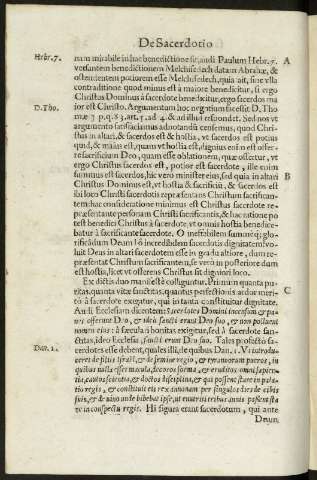 De Sacerdotio
Hebr. 7.
nam mirabile in hac benedictione sit, audi Paulum Hebr. 7. A
versantem benedictionem Melchisedech datam Abrahæ, &
ostendentem potiorem esse Melchisedech, quia ait, sine vlla
contradictione quod minus est à maiore benedicitur, si ergo
Christus Dominus à sacerdote benedicitur, ergo sacerdos ma
D. Tho.
ior est Christo. Argumentum hoc negotium facessit D. Tho
mæ 3 p. q. 83. art. 5. ad 4. & ad illud respondet. Sed nos vt
argumento satisfaciamus adnotandū censemus, quod Chri-
stus in altari, & sacerdos est & hostia, vt sacerdos est potius
quid, & maius est, quam vt hostia est, dignius enim est offer-
re sacrificium Deo, quam esse oblationem, quæ offertur, vt
ergo Christus sacerdos est, potior est sacerdote, ille enim
summus est sacerdos, hic vero minister eius, sed quia in altari
Christus Dominus est, vt hostia & sacrificiū, & sacerdos est B
ibi loco Christi sacerdotis repræsentans Christum sacrifican-
tem: hac consideratione minimus est Christus sacerdote re-
præsentante personam Christi sacrificantis, & hac ratione po
test benedici Christus à sacerdote vt omnis hostia benedice-
batur à sacrificante sacerdote. O ineffabilem summeq; glo-
rificādum Deum! ô incredibilem sacerdotis dignitatem! vo-
luit Deus in altari sacerdotem esse in gradu altiore, dum re-
præsentat Christum sacrificantem, se verò in posteriore dum
est hostia, licet vt offerens Christus sit digniori loco.
Ex dictis duo manifestè colliguntur. Primum quanta pu-
ritas, quanta vitæ sanctitas, quantus perfectionis ardor meri- C
tò à sacerdote exigatur, qui in tanta constituitur dignitate.
Audi Ecclesiam dicentem: sacerdotes Domini incensum & pa-
nes offerunt Deo, & ideò sancti erunt Deo suo, & non polluent
nomen eius: à sæcula bonitas exigitur, sed à sacerdote san-
ctitas, ideo Ecclesia sancti erunt Deo suo. Tales profectò sa-
Dan. 1.
cerdotes esse debent, quales illi, de quibus Dan. 1. Vt introdu-
ceret de filiis Israel, & de semine regio, & tyrannorum pueros, in
quibus nulla esset macula, decoros forma, & eruditos omni sapien-
tia, cautos scientia, & doctos disciplina, & qui possent stare in pala-
tio regis, & constituit eis rex annonam per singulos dies de cibis
suis, & de vino unde bibebat ipse, ut enutriti tribus annis possent sta
re in conspectu regis. Hi figura erant sacerdotum, qui ante
Deum